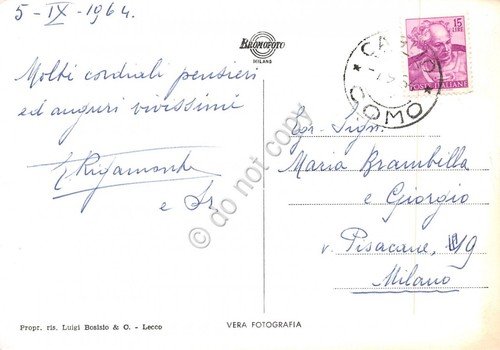 5-IX-1964.
BROMOFOTO
MILANO
Molti cordiali pensieri
ed auguri vivissimi
E Rigamonti
e Sr.
15
LIRE
POSTE ITALIANE
COMO
Gor. Sigm.
Maria Brambilla
e Giorgio
v. Pisacane, 49
Milano
do not copy
Propr. ris. Luigi Bosisio & C. - Lecco
VERA FOTOGRAFIA